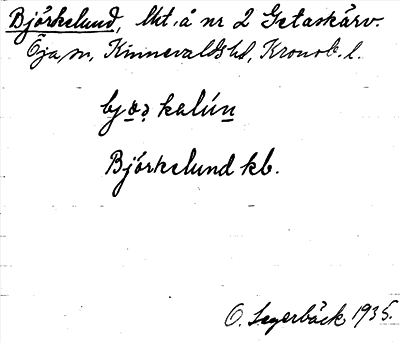 Björkelund, lht. å nr 2 Getaskärv.
Öja sn, Kinnevalds hd, Kronob. l.
bjœ̣rkelún
Björkelund kb.
O. Segerbäck 1935.